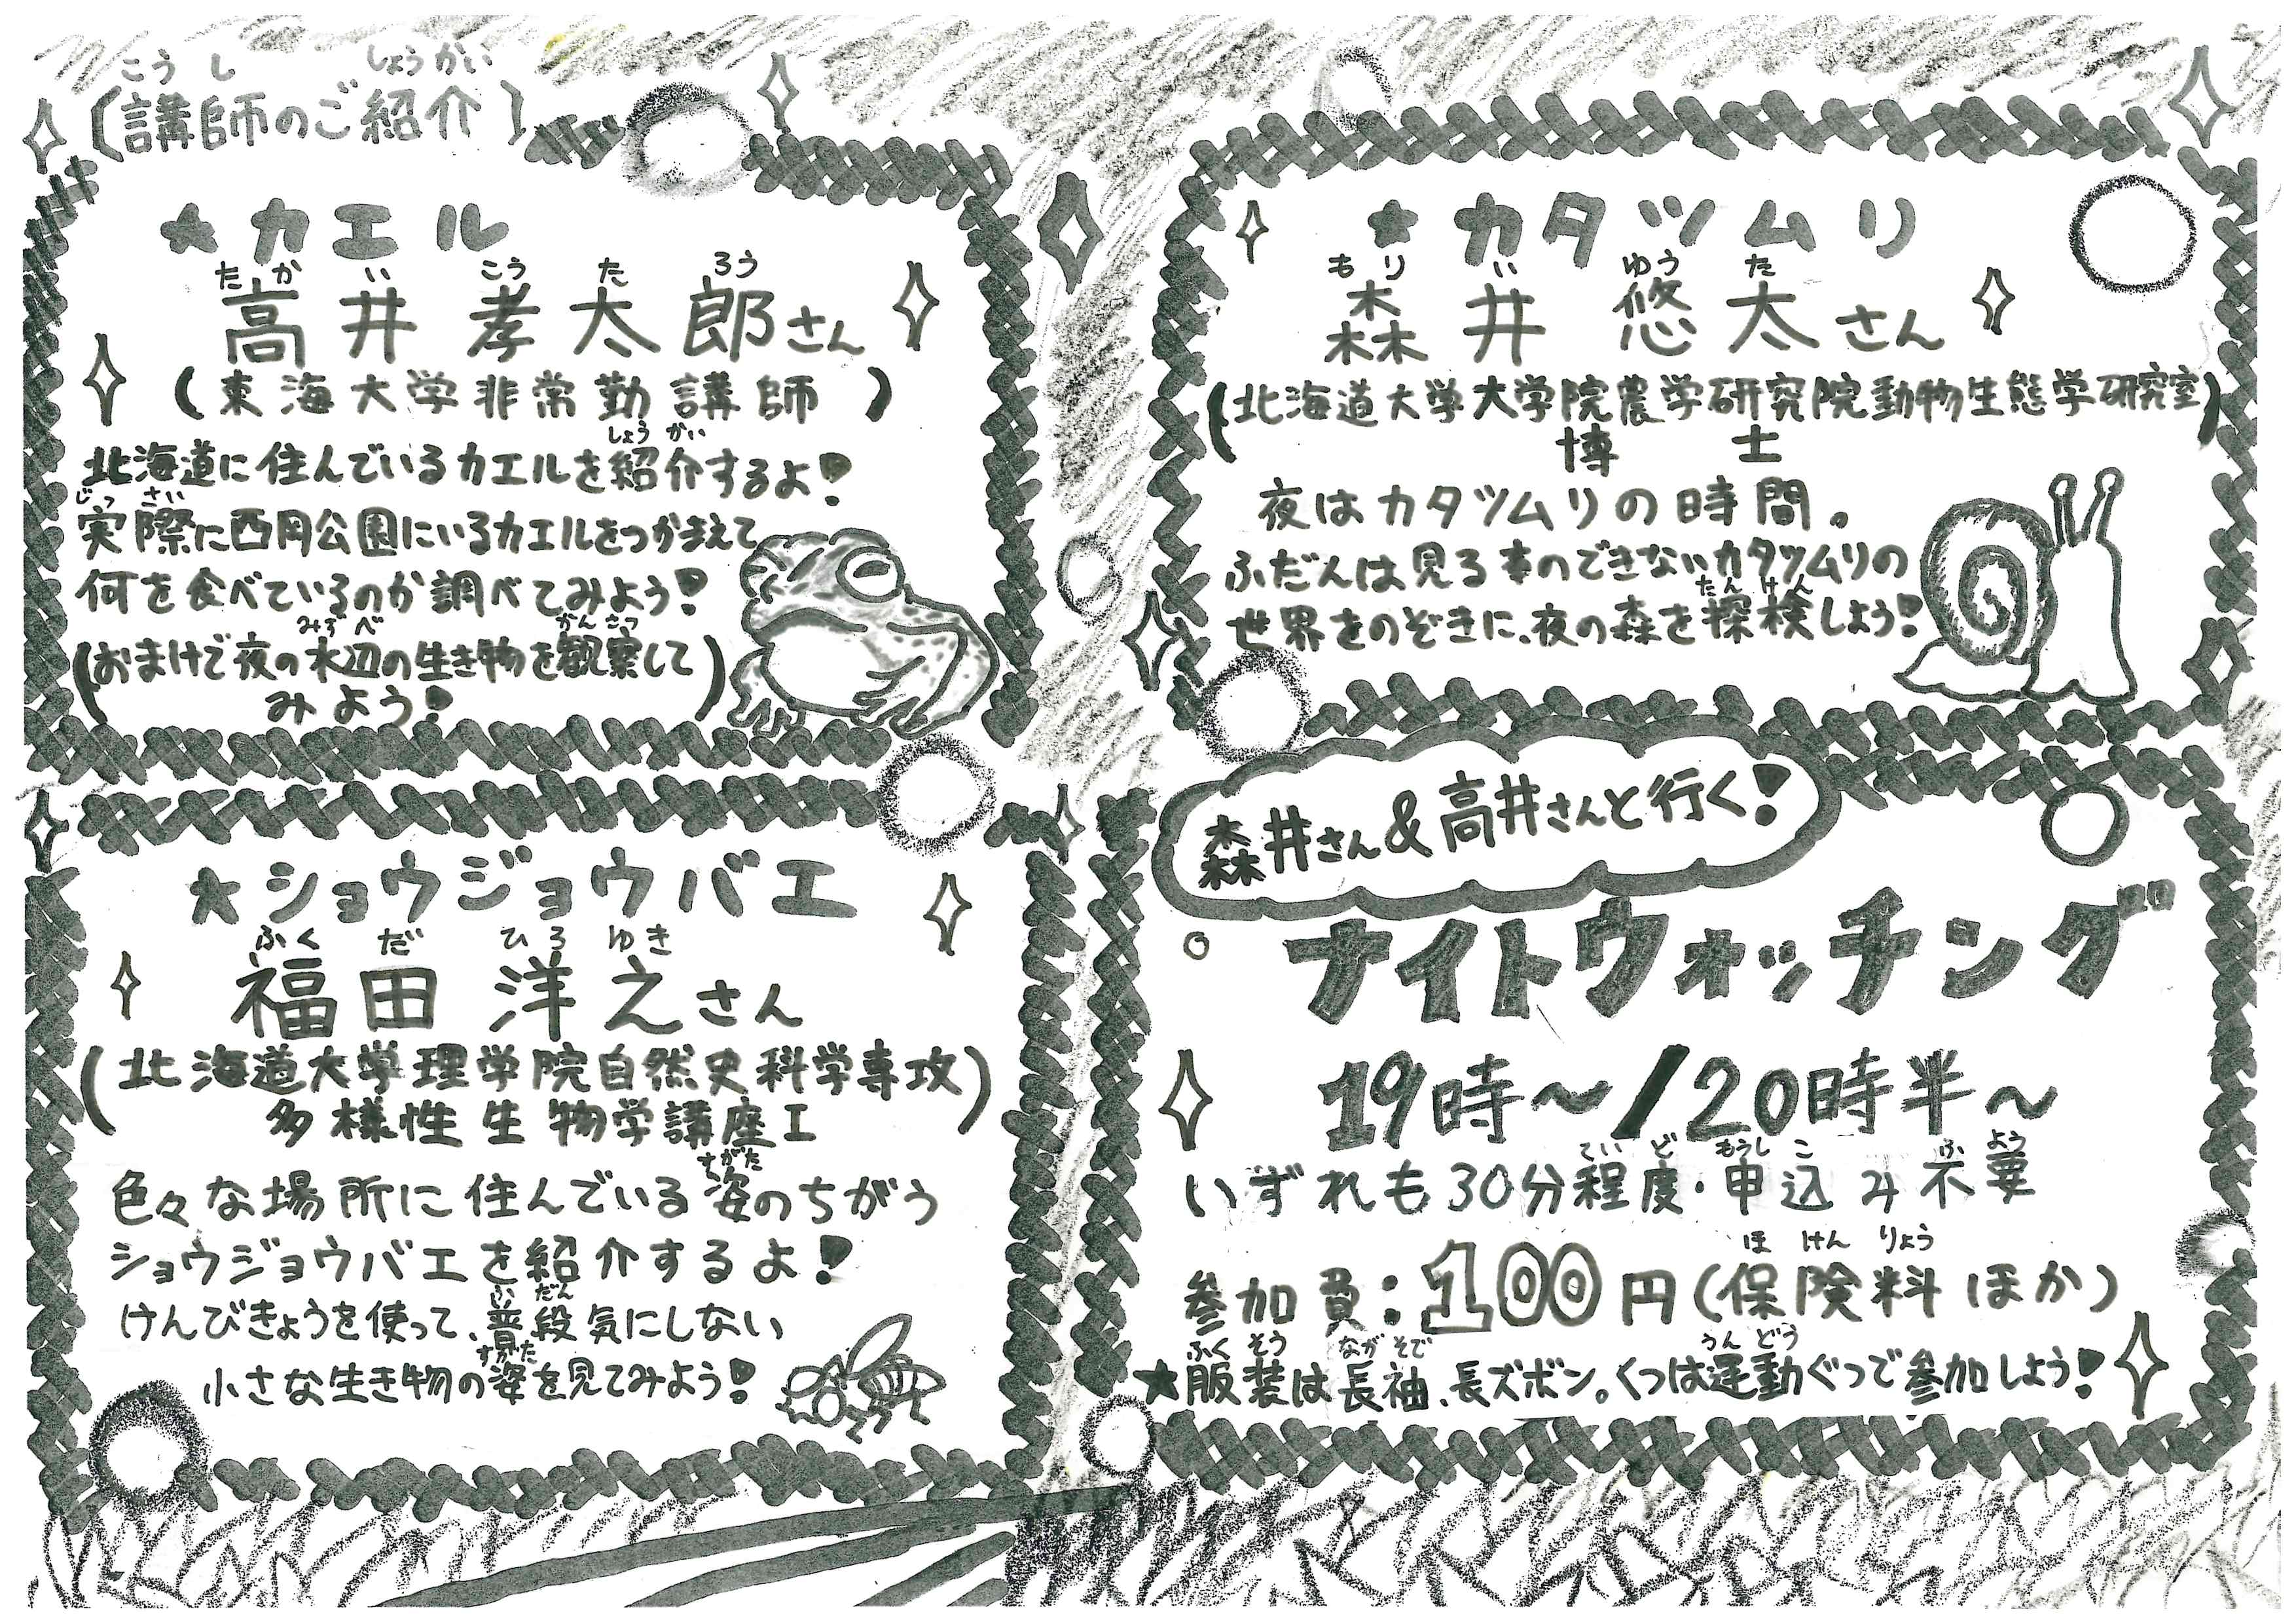 こうし しょうかい
(講師のご紹介)
★カエル
たかい こうたろう
高井孝太郎さん
(東海大学非常勤講師)
しょうかい
北海道に住んでいるカエルを紹介するよ!
じっさい
実際に西岡公園にいるカエルをつかまえて
何を食べているのか調べてみよう!
みずべ かんさつ
(おまけで夜の水辺の生き物を観察して
みよう!)
★カタツムリ
もりい ゆうた
森井悠太さん
(北海道大学大学院農学研究院動物生態学研究室)
博士
夜はカタツムリの時間。
ふだんは見る事のできないカタツムリの
たんけん
世界をのぞきに、夜の森を探検しよう!
★ショウジョウバエ
ふくだ ひろゆき
福田洋之さん
(北海道大学理学院自然史科学専攻
多様性生物学講座I)
すがた
色々な場所に住んでいる姿のちがう
ショウジョウバエを紹介するよ!
ふだん
けんびきょうを使って、普段気にしない
すがた
小さな生き物の姿を見てみよう!
森井さん&高井さんと行く!
ナイトウォッチング
19時〜/20時半〜
ていど もうしこ ふよう
いずれも30分程度・申込み不要
ほけんりょう
参加費:100円(保険料ほか)
ふくそう ながそで うんどう
★服装は長袖、長ズボン。くつは運動ぐつで参加しよう!